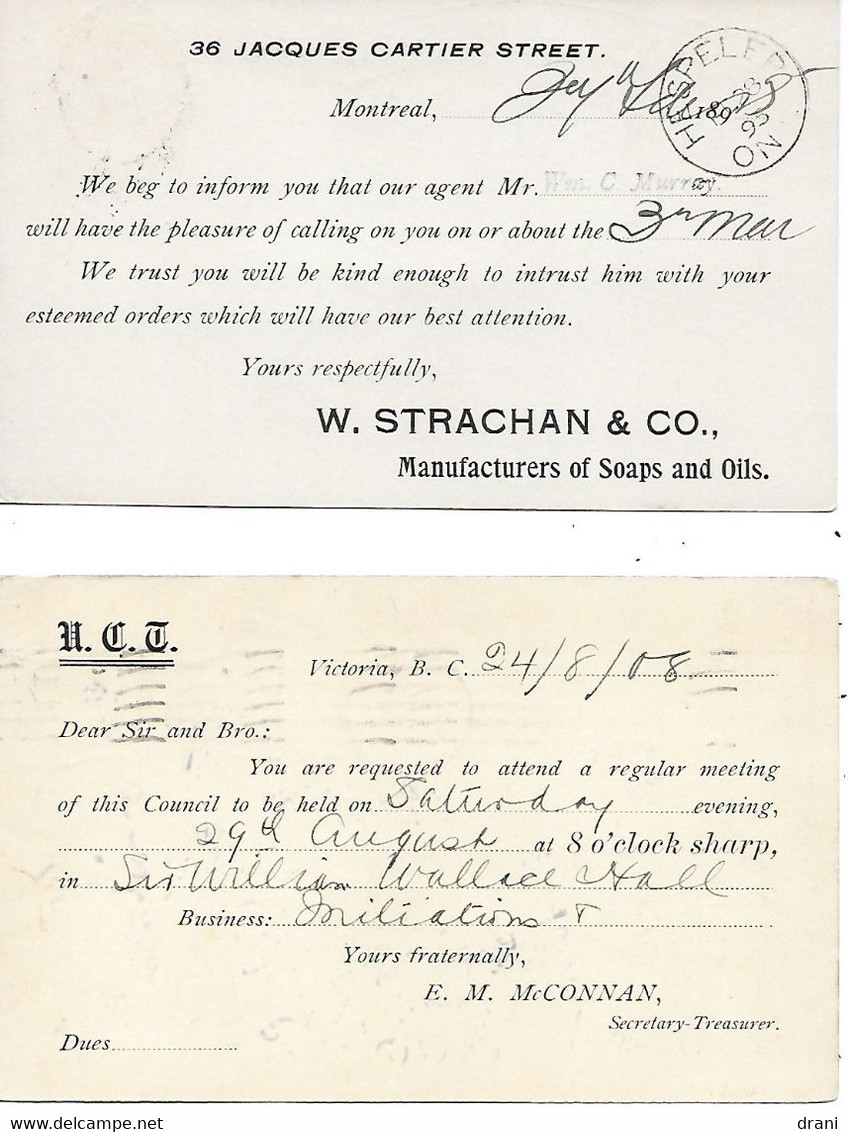 36 JACQUES CARTIER STREET.
HESPELER
ON
Montreal, 189
We beg to inform you that our agent Mr. Wm. C. Murray.
will have the pleasure of calling on you on or about the 3rd Mar
We trust you will be kind enough to intrust him with your
esteemed orders which will have our best attention.
Yours respectfully,
W. STRACHAN & CO.,
Manufacturers of Soaps and Oils.
U. C. T.
Victoria, B. C. 24/8/08
Dear Sir and Bro.:
You are requested to attend a regular meeting
of this Council to be held on Saturday evening,
29th August at 8 o'clock sharp,
in Sir William Wallace Hall
Business: Initiations
Yours fraternally,
E. M. McCONNAN,
Secretary-Treasurer.
Dues
drani